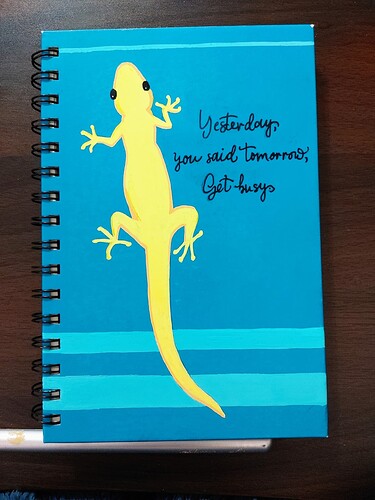 Yesterday,
you said tomorrow,
Get busy.